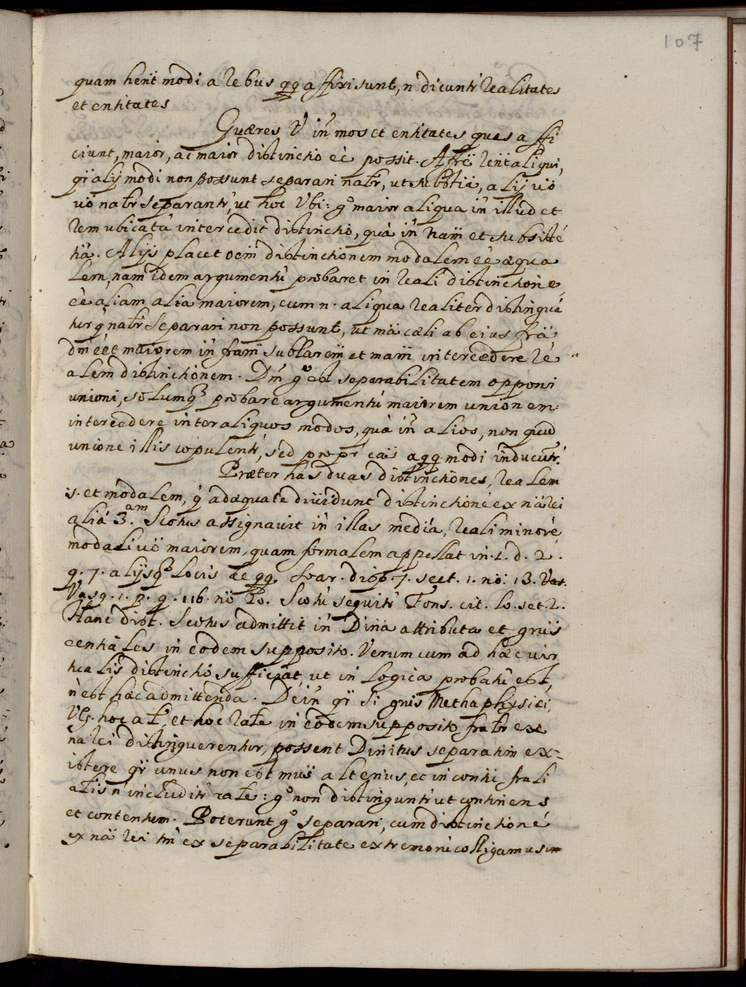 107
quam hent modi a rebus qq affixi sunt, n dicuntr realitates
et entitates
Quæres V in mos et entitates quas affi
ciunt, maior, ac maior distinctio eē possit. Affrē
qi alij modi non possunt separari natr, ut subsistia, alij vo
vo natr separantr, ut hoc Vbi: go maior aliqua in illud et
rem ubicatā intercedit distinctio, quā in nam et subsistē
tiā. Alijs placet oem distinctionem modalem eē æqua
lem, nam idem argumentū probaret in reali distinctione
eē aliam alia maiorem, cum n. aliqua realiter distinguā
tur q natr separari non possunt, ut mā cæli ab eius frā
et maiorem in fram sublarem et mam intercedere re
alem distinctionem. Dm go est separabilitatem opponi
unioni, solumqe probare argumentū maiorem unionem
intercedere inter aliquos modos, quā in alios, non quod
unione illis copulentr, sed propr eas aqq modi inducūt.
Præter has duas distinctiones, realem
s. et modalem, q adæquate dividunt distinctionē ex nā rei
aliā 3am. Scotus assignavit in illas mediā, reali minorē
modali vo maiorem, quam formalem appellat in 1. d. 2.
q. 7. alijsqe locis de qq Soar. disp. 7. sect. 1. no. 13. Vas.
Vasq. 1. p. q. 116. no Scotū sequitr Fons. cit. lo. sect 2.
Hanc dist. Scotus admittit in Dina attributa et grūs
eentiāles in eodem supposito. Verum cum ad hæc vir
tualis distinctio sufficiat, ut in logica probatū est,
n est hæc admittenda. Dein qi si grus Methaphysici,
Vg. hoc at, et hoc rate in eodem supposito fratr ex
nā rei distinguerentur, possent Divitus separatim ex=
istere qi unus non est mus alterius, et in contū frali
alis n includitr rate: go non distinguntr ut continens
et contentum. Poterunt go separari, cum distinctionē
ex nā rei tm ex separabilitate extremorū colligamus in